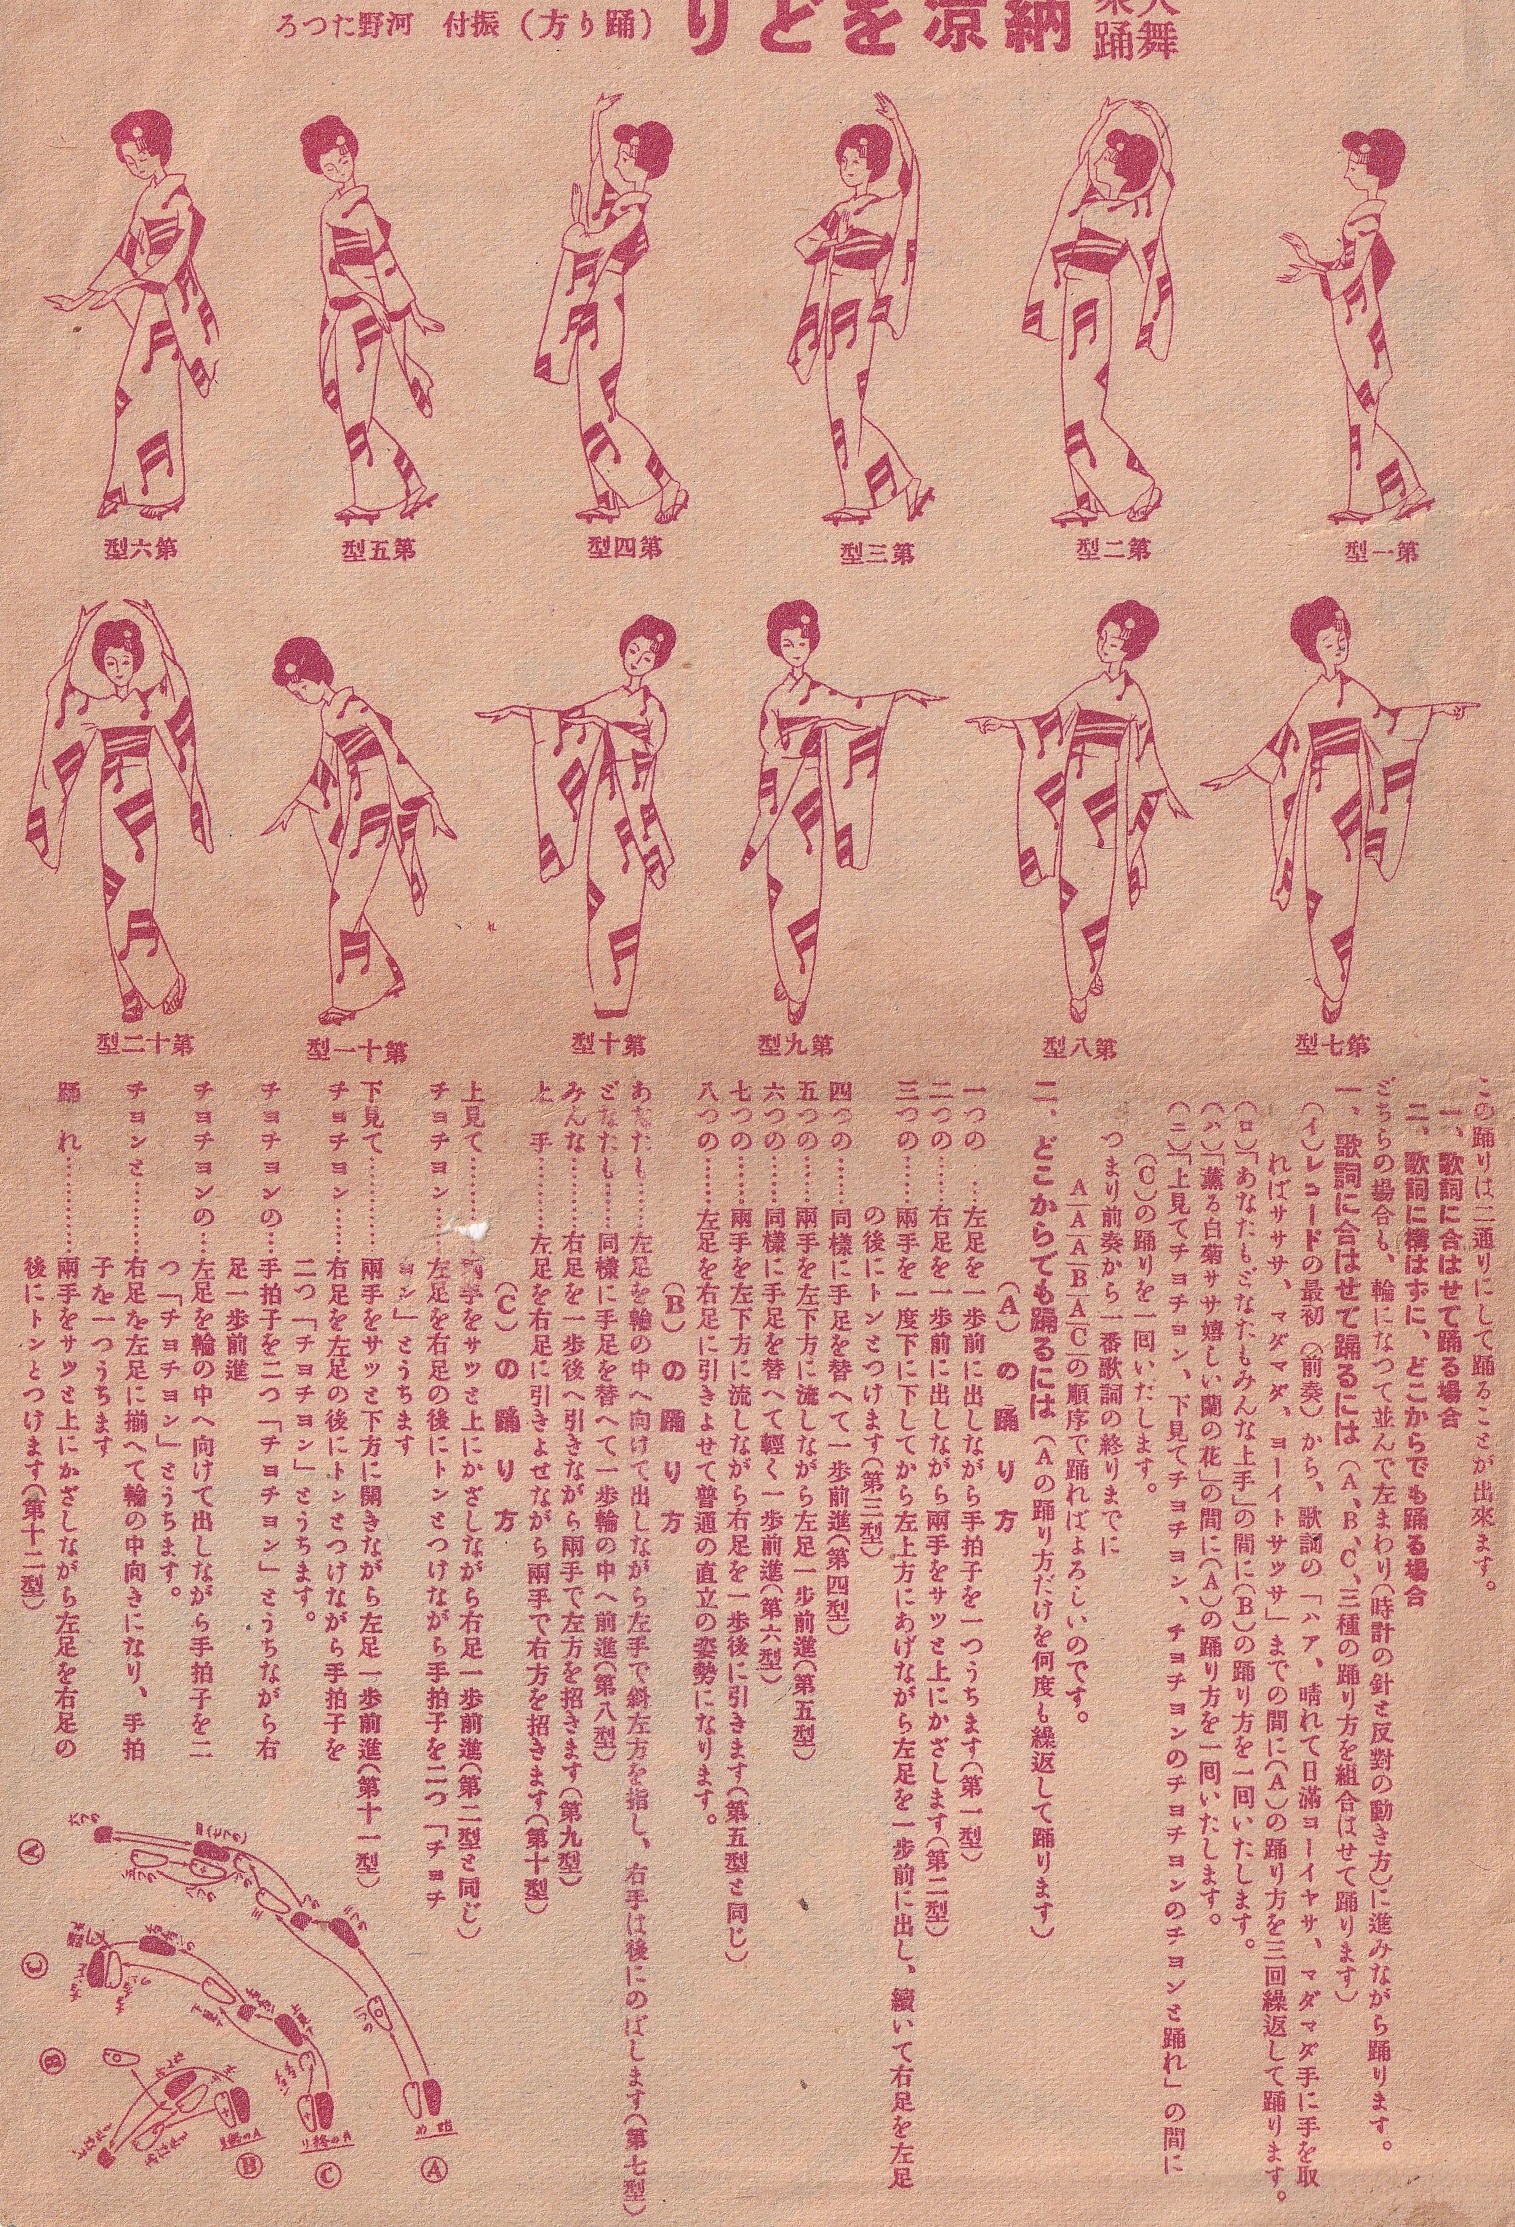 舞踊
納涼をどり
(踊り方) 振付 河野たつろ
第一型
第二型
第三型
第四型
第五型
第六型
第七型
第八型
第九型
第十型
第十一型
第十二型
この踊りは二通りにして踊ることが出來ます。
一、歌詞に合はせて踊る場合
二、歌詞に構はずに、どこからでも踊る場合
どちらの場合も、輪になつて並んで左まわり(時計の針と反對の動き方)に進みながら踊ります。
一、歌詞に合はせて踊るには(A、B、C、三種の踊り方を組合はせて踊ります)
(イ)レコードの最初(前奏)から、歌詞の「ハア、晴れて日滿ヨーイヤサ、マダマダ手に手を取
ればサササ、マダマダ、ヨーイトサツサ」までの間に(A)の踊り方を三回繰返して踊ります。
(ロ)「あなたもどなたもみんな上手」の間に(B)の踊り方を一回いたします。
(ハ)「薫る白菊ササ嬉しい蘭の花」の間に(A)の踊り方を一回いたします。
(ニ)「上見てチヨチヨン、下見てチヨチヨン、チヨチヨンのチヨチヨンのチヨンと踊れ」の間に
(C)の踊りを一回いたします。
つまり前奏から一番歌詞の終りまでに
A—A—A—B—A—Cの順序で踊ればよろしいのです。
二、どこからでも踊るには(Aの踊り方だけを何度も繰返して踊ります)
(A)の踊り方
一つの……左足を一歩前に出しながら手拍子を一つうちます(第一型)
二つの……右足を一歩前に出しながら兩手をサツと上にかざします(第二型)
三つの……兩手を一度下に下してから左上方にあげながら左足を一歩前に出し、續いて右足を左足
の後にトンとつけます(第三型)
四つの……同樣に手足を替へて一歩前進(第四型)
五つの……兩手を左下方に流しながら左足一歩前進(第五型)
六つの……同樣に手足を替へて輕く一歩前進(第六型)
七つの……兩手を左下方に流しながら右足を一歩後に引きます(第五型と同じ)
八つの……左足を右足に引きよせて普通の直立の姿勢になります。
(B)の踊り方
あなたも……左足を輪の中へ向けて出しながら左手で斜左方を指し、右手は後にのばします(第七型)
どなたも……同樣に手足を替へて一歩輪の中へ前進(第八型)
みんな……右足を一歩後へ引きながら兩手で左方を招きます(第九型)
上手……左足を右足に引きよせながら兩手で右方を招きます(第十型)
(C)の踊り方
上見て……兩手をサツと上にかざしながら右足一歩前進(第二型と同じ)
チヨチヨン……左足を右足の後にトンとつけながら手拍子を二つ「チヨチ
ヨン」とうちます
下見て……兩手をサツと下方に開きながら左足一歩前進(第十一型)
チヨチヨン……右足を左足の後にトンとつけながら手拍子を
二つ「チヨチヨン」とうちます。
チヨチヨンの……手拍子を二つ「チヨチヨン」とうちながら右
足一歩前進
チヨチヨンの……左足を輪の中へ向けて出しながら手拍子を二
つ「チヨチヨン」とうちます。
チヨンと……右足を左足に揃へて輪の中向きになり、手拍
子を一つうちます
踊れ……兩手をサツと上にかざしながら左足を右足の
後にトンとつけます(第十二型)
Ⓐ
Ⓒ
Ⓑ
Ⓑ
Ⓒ
Ⓐ
Aの終り